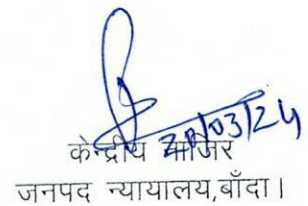 20/03/24
केन्द्रीय नाजिर
जनपद न्यायालय,बाँदा।